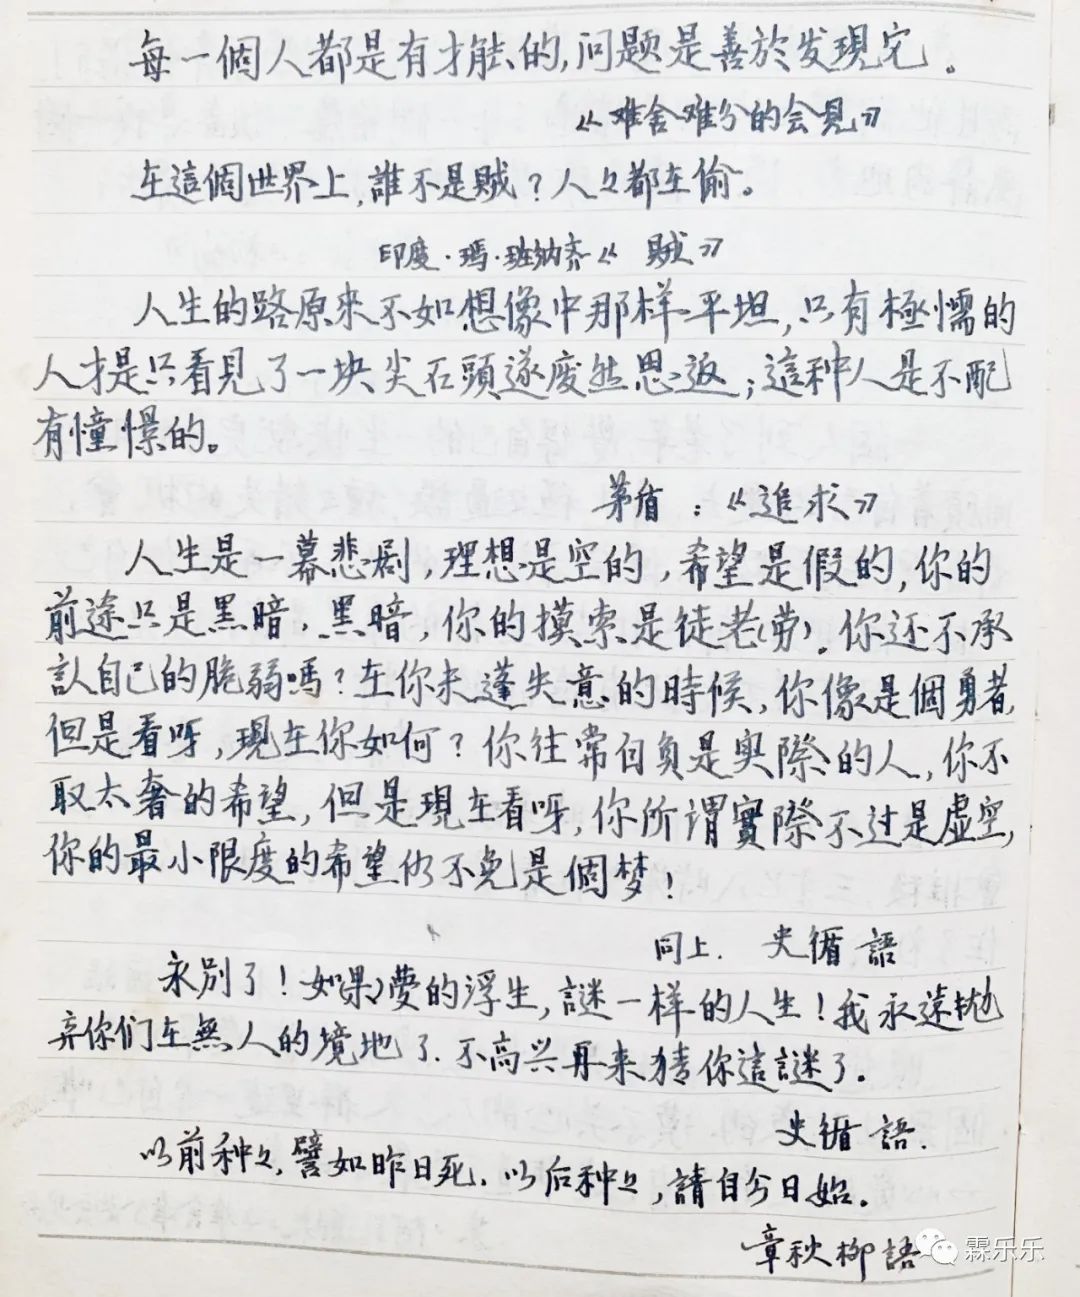 每一個人都是有才能的,问题是善於发現它。
《难舍难分的会見》
在這個世界上,誰不是賊?人々都在偷。
印度·瑪·班纳齐《 賊》
人生的路原来不如想像中那样平坦,只有極懦的
人才是只看見了一块尖石頭遂废然思返;這种人是不配
有憧憬的。
茅盾:《追求》
人生是一幕悲剧,理想是空的,希望是假的,你的
前途只是黑暗 黑暗,你的摸索是徒老(劳)。你还不承
認自己的脆弱嗎?在你未逢失意的時候,你像是個勇者,
但是看呀,現在你如何?你往常自負是実際的人,你不
取太奢的希望,但是現在看呀,你所谓實際不过是虚空,
你的最小限度的希望仍不免是個梦!
同上. 史循語
永别了!如果夢的浮生,謎一样的人生!我永远抛
弃你们在無人的境地了.不高兴再来猜你這謎了。
史循語.
以前种々,譬如昨日死.以后种々,請自今日始。
章秋柳語
霖乐乐